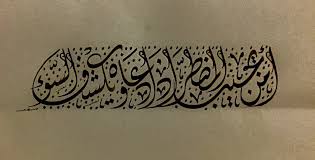 أمن يجيب المضطر إذا دعاه ويكشف السوء